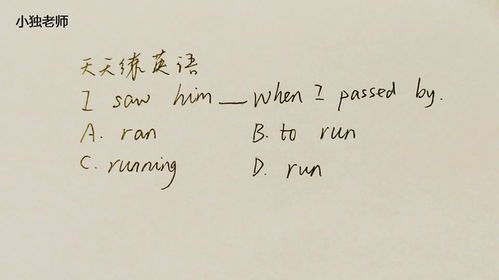 小独老师
天天练英语
I saw him __ when I passed by.
A. ran B. to run
C. running D. run